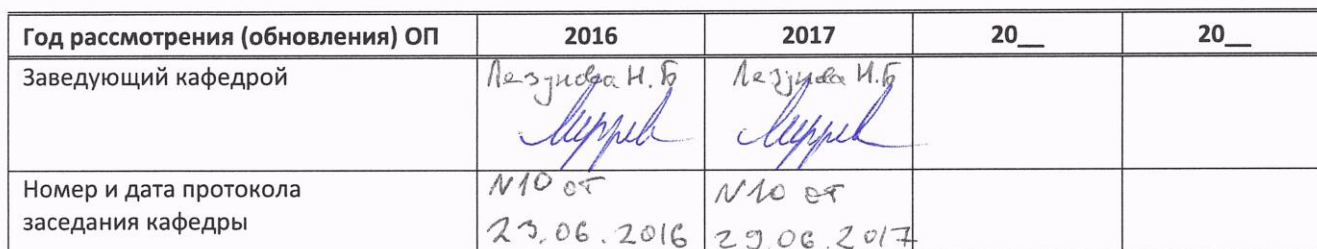 Год рассмотрения (обновления) ОП 2016 2017 20__ 20__
Заведующий кафедрой Лезунова Н.Б Лезунова Н.Б
Номер и дата протокола N10 от N10 от
заседания кафедры 23.06.2016 29.06.2017